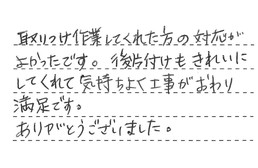 取りつけ作業してくれた方の対応が
よかったです。後片付けもきれいに
してくれて気持ちよく工事がおわり
満足です。
ありがとうございました。